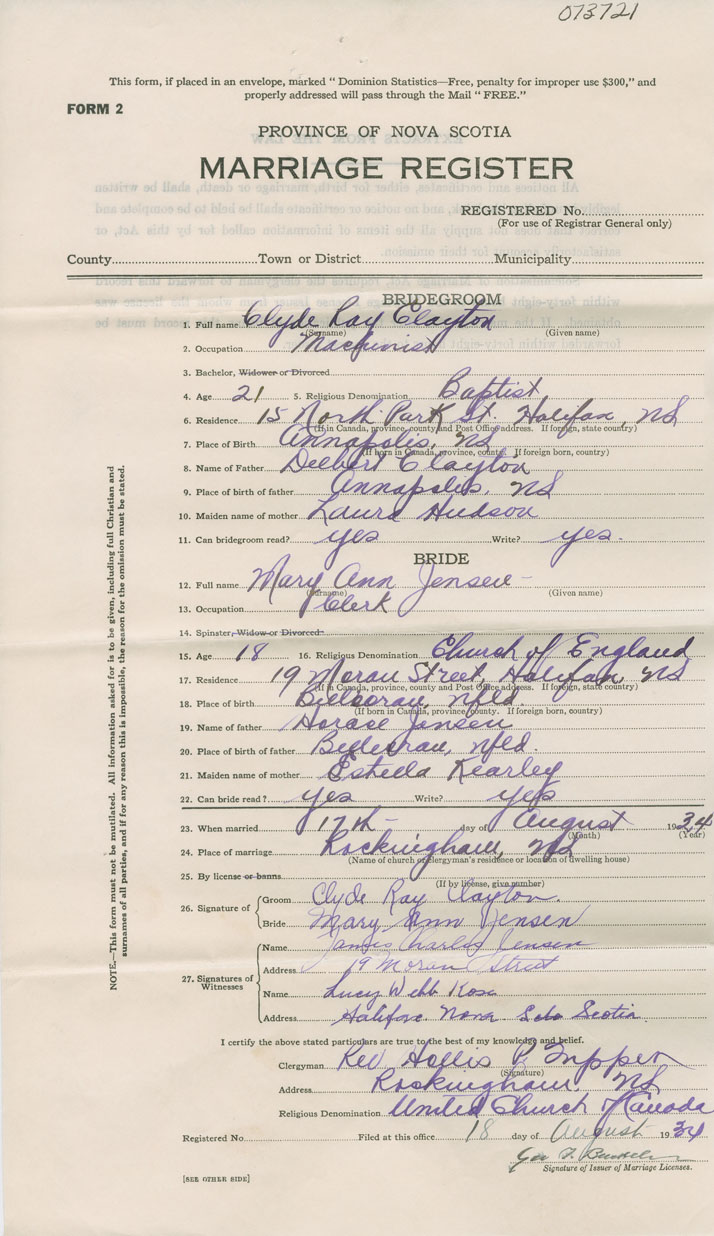 073721
This form, if placed in an envelope, marked "Dominion Statistics—Free, penalty for improper use $300," and
properly addressed will pass through the Mail "FREE."
FORM 2
PROVINCE OF NOVA SCOTIA
MARRIAGE REGISTER
REGISTERED No.
(For use of Registrar General only)
County Town or District Municipality
BRIDEGROOM
1. Full name Clyde Ray Clayton
(Surname) (Given name)
2. Occupation Machinist
3. Bachelor, Widower or Divorced
4. Age 21 5. Religious Denomination Baptist
6. Residence 15 North Park St. Halifax, NS
(If in Canada, province, county and Post Office address. If foreign, state country)
7. Place of Birth Annapolis, NS
(If born in Canada, province, county. If foreign born, country)
8. Name of Father Delbert Clayton
9. Place of birth of father Annapolis, NS
10. Maiden name of mother Laura Hudson
11. Can bridegroom read? yes Write? yes.
BRIDE
12. Full name Mary Ann Jensen
(Surname) (Given name)
13. Occupation Clerk
14. Spinster, Widow or Divorced
15. Age 18 16. Religious Denomination Church of England
17. Residence 19 Moran Street, Halifax, NS
(If in Canada, province, county and Post Office address. If foreign, state country)
18. Place of birth Nfld.
(If born in Canada, province, county. If foreign born, country)
19. Name of father Horace Jensen
20. Place of birth of father Nfld.
21. Maiden name of mother Estella Kearley
22. Can bride read? yes Write? yes
23. When married 17th day of August 1934
(Month) (Year)
24. Place of marriage Rockingham, NS
(Name of church or clergyman's residence or location of dwelling house)
25. By license or banns
(If by license, give number)
26. Signature of
Groom Clyde Ray Clayton
Bride Mary Ann Jensen
27. Signatures of Witnesses
Name James Charles Jensen
Address 19 Moran Street
Name Lucy Webb Rose
Address Halifax Nova Scotia
I certify the above stated particulars are to the best of my knowledge and belief.
Clergyman Rev Hollis P.
(Signature)
Address Rockingham, NS
Religious Denomination United Church of Canada
Registered No. Filed at this office 18 day of August 1934
Geo
Signature of Issuer of Marriage Licenses.
[SEE OTHER SIDE]
NOTE.—This form must not be mutilated. All information asked for is to be given, including full Christian and
surnames of all parties, and if for any reason this is impossible, the reason for the omission must be stated.